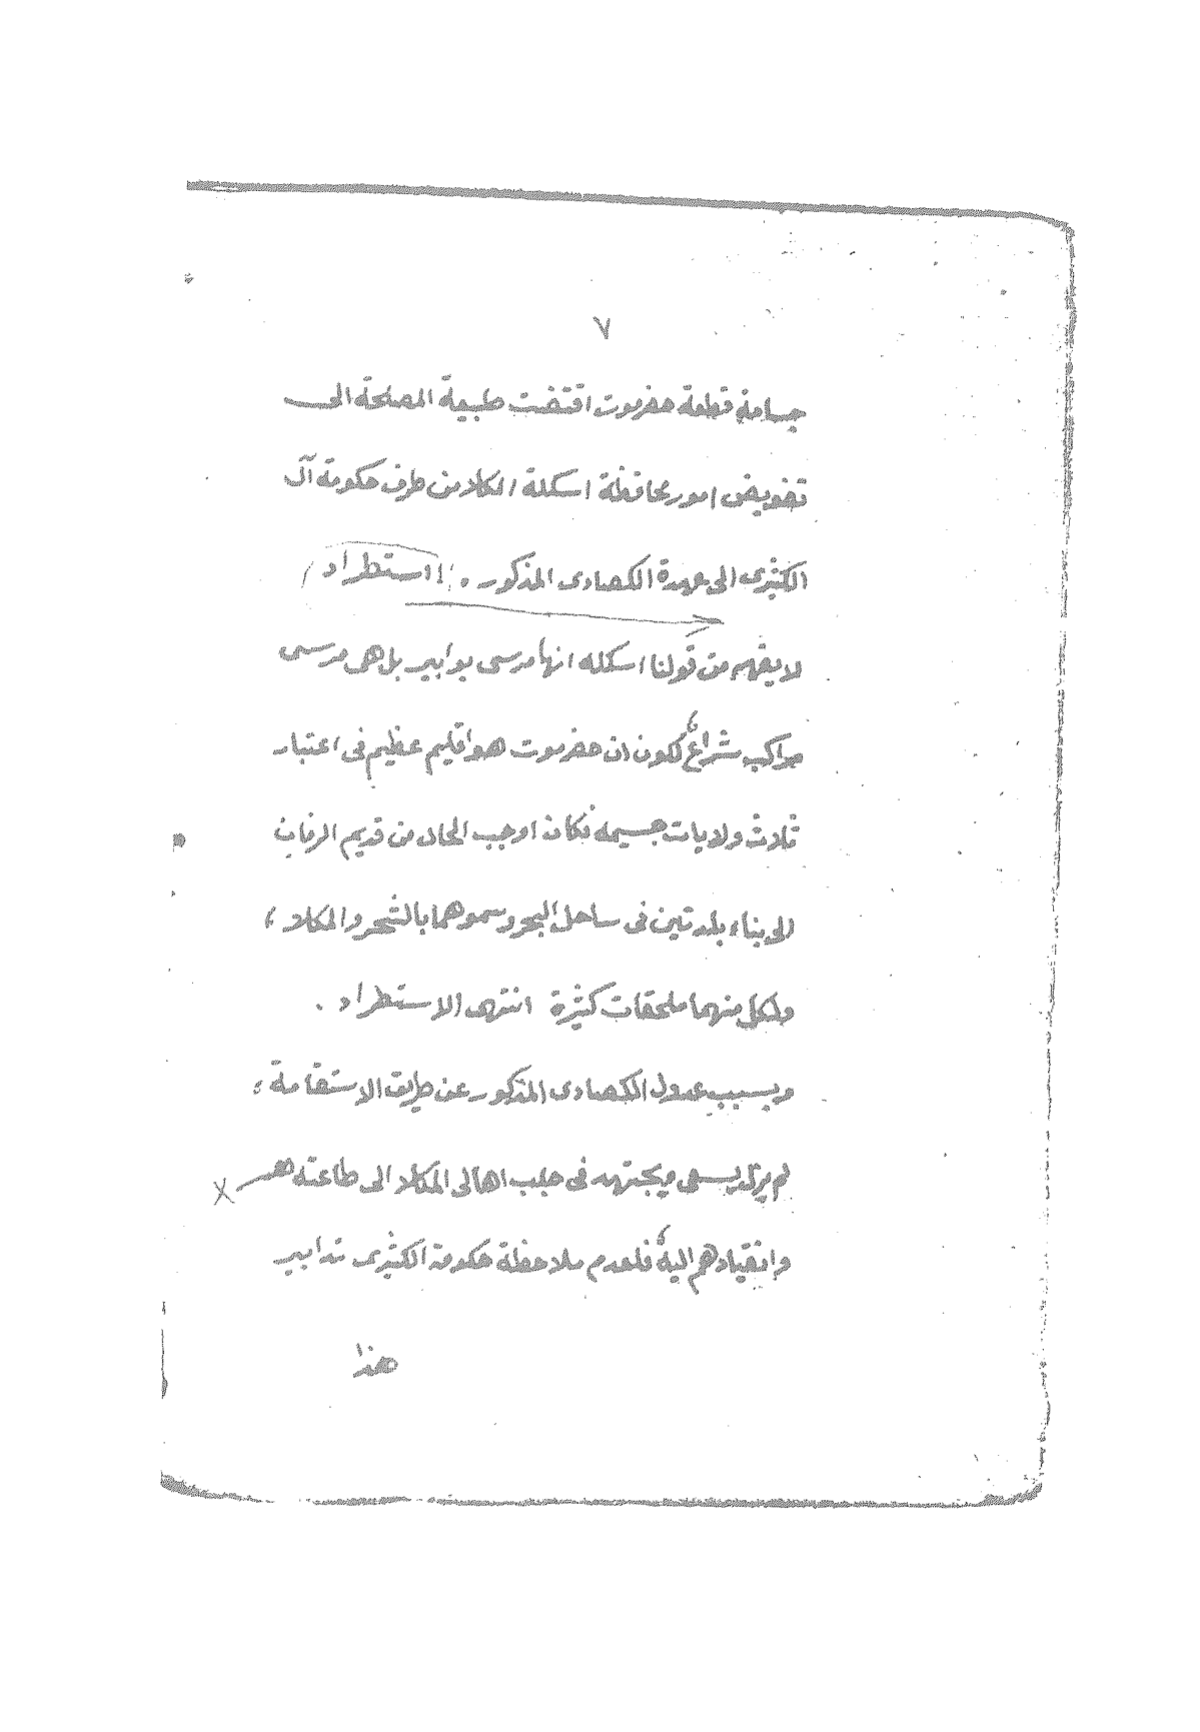 ٧
جسامة قطعة حضرموت اقتضت طبيعة المصلحة الى
تفويض امور محافظة اسكلة المكلا من طرف حكومة آل
الكثيرى الى عهدة الكصادى المذكور . (استطراد)
لا يفهم من قولنا اسكله انها مرسى بوابير بل هى مرسى
مراكب شراع لكون ان حضرموت هو اقليم عظيم فى اعتبار
ثلاث ولايات جسيمه فكان اوجب الحال من قديم الزمان
الى بناء بلدتين فى ساحل البحر وسموهما بالشحر والمكلا ،
ولكل منهما ملحقات كثيرة انتهى الاستطراد .
وبسبب عدول الكصادى المذكور عن طريق الاستقامة ؛
لم يزل يسعى ويجتهد فى جلب اهالى المكلا الى طاعته
وانقيادهم اليه فلعدم ملاحظة حكومة الكثيرى تدابير
هذا